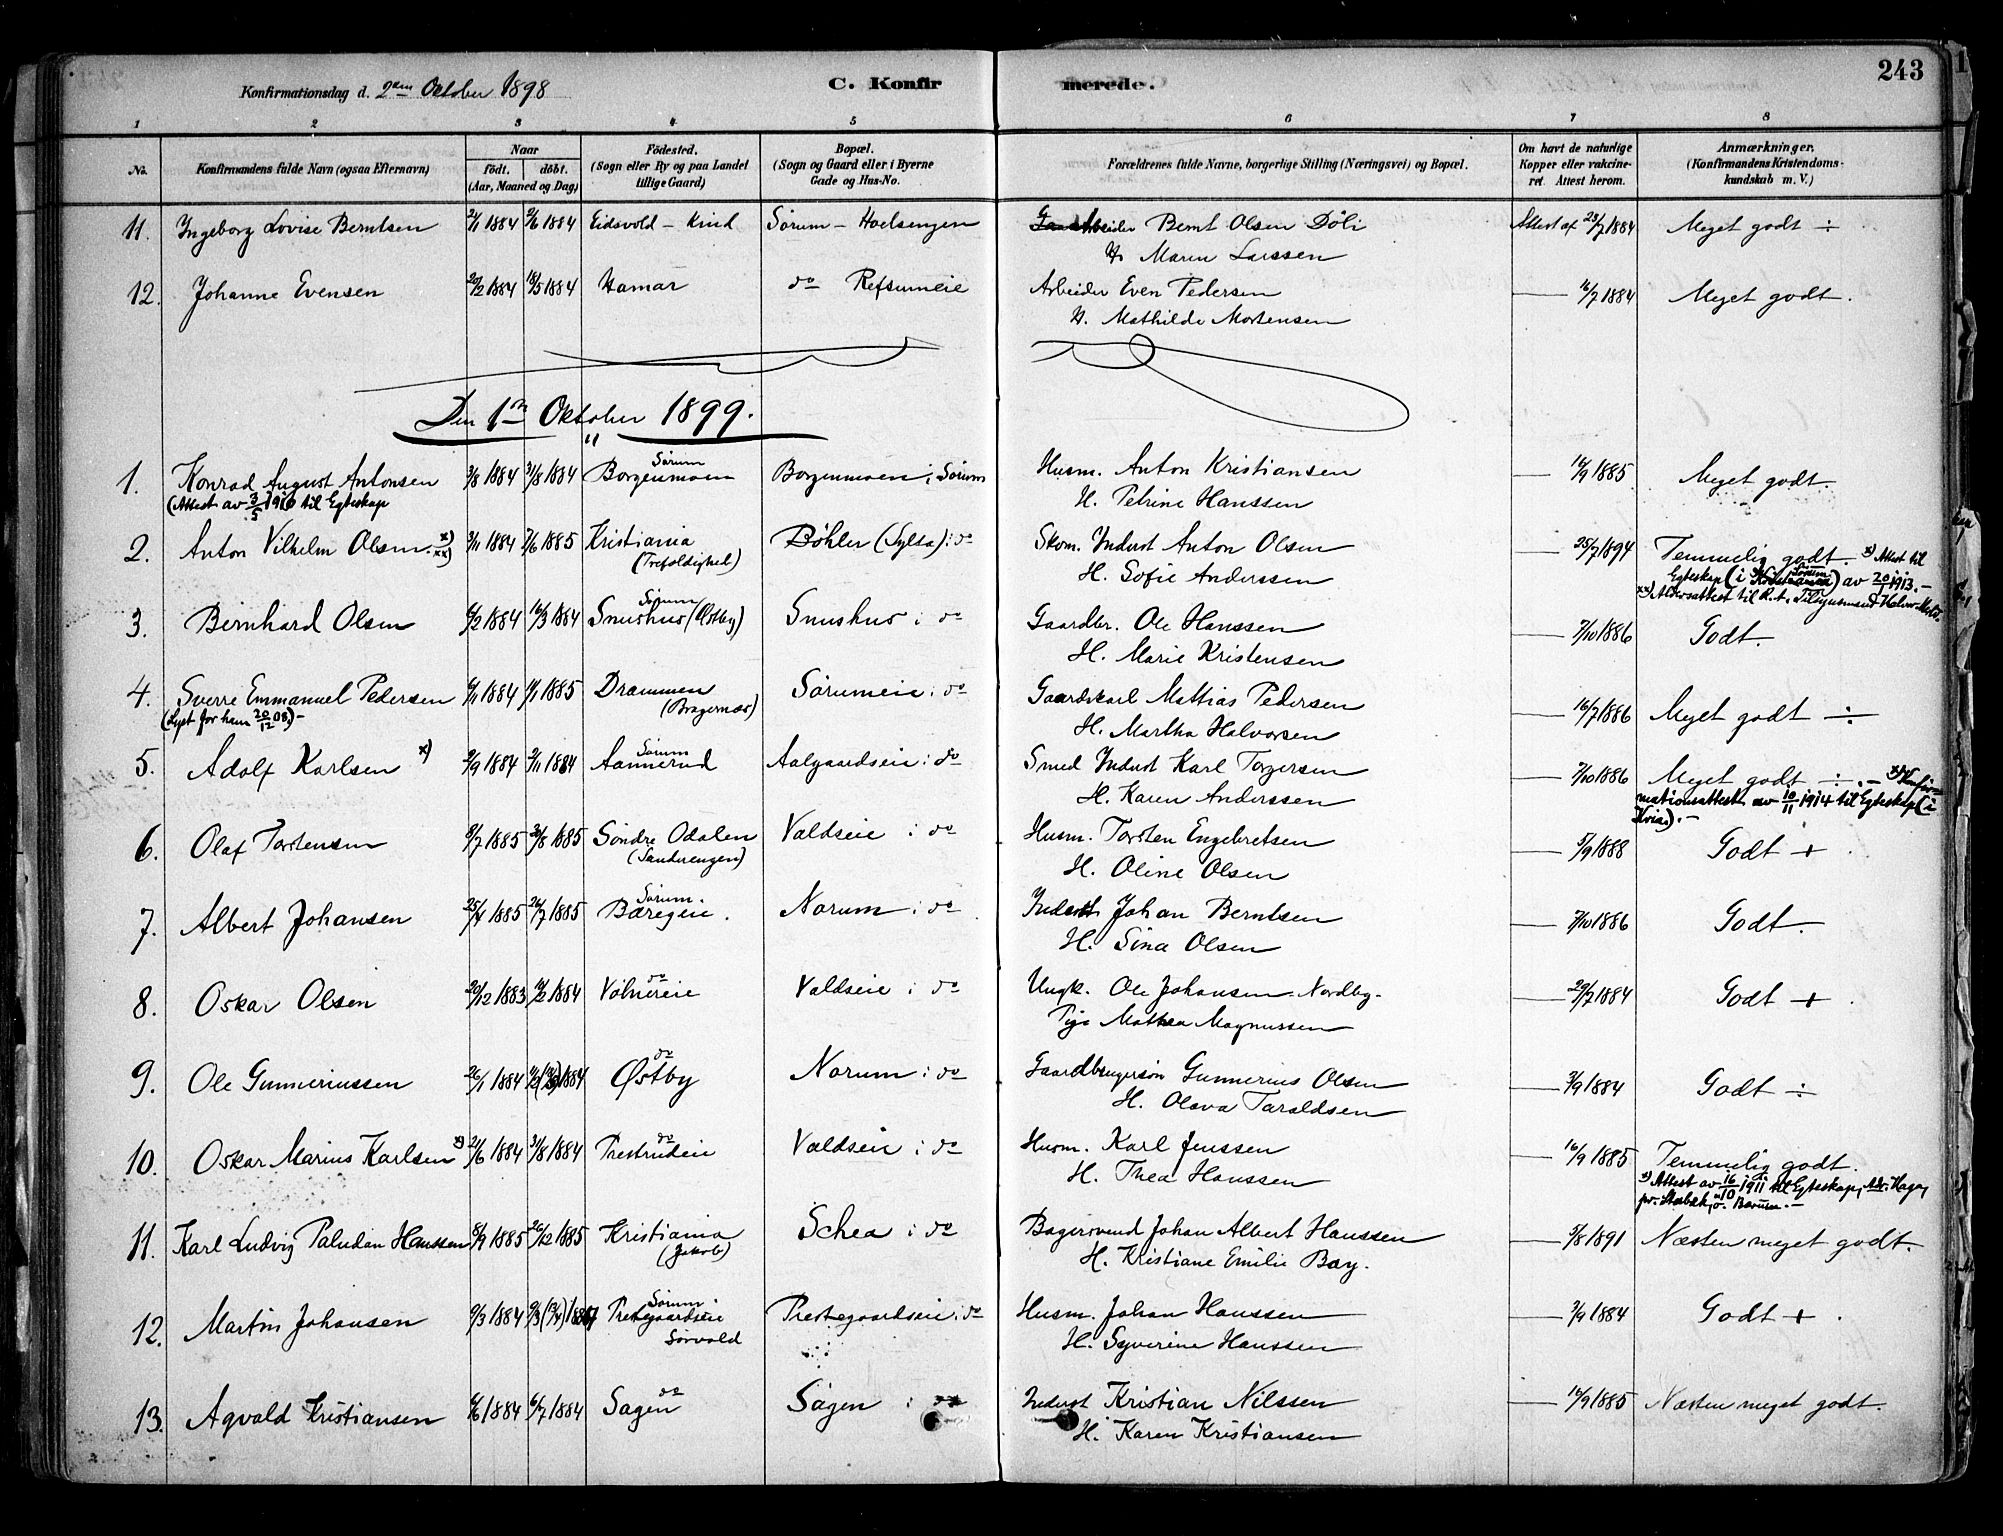 243
Konfirmationsdag d. 2den October 1898 C. Konfirmerede.
1 2 3 4 5 6 7 8
No. Konfirmandens fulde Navn (ogsaa Efternavn) Naar födt. döbt. (Aar, Maaned og Dag) Födested. (Sogn eller By og paa Landet tillige Gaard) Bopæl. (Sogn og Gaard eller i Byerne Gade og Hus-No. Forældrenes fulde Navne, borgerlige Stilling (Næringsvei) og Bopæl. Om havt de naturlige Kopper eller vakcineret. Attest herom. Anmærkninger, (Konfirmandens Kristendomskundskab m. V.)
11. Ingeborg Lovise Berntsen 2/1 1884 2/6 1884 Eidsvold - Sørum - Arbeider Bernt Olsen Döli Attest af 23/7 1884 Meget godt ÷
H. Maren Larssen
12. Johanne Evensen 22/2 1884 18/5 1884 Hamar do Refsumeie Arbeider Even Pedersen — 16/7 1884 Meget godt.
H. Mathilde Mortensen
Den 1ste Oktober 1899.
1. Konrad August Antonsen 3/8 1884 31/8 1884 Borgenmoen Sørum Borgenmoen i Sørum Husm. Anton Kristiansen — 16/9 1885 Meget godt.
(Attest av 3/5 1916 til Egteskap H. Petrine Hanssen
2. Anton Vilhelm Olsen x) xx) 3/11 1884 7/6 1885 Kristiania (Trefoldighed) Bøhler (Sylta) i do Skom. Inderst Anton Olsen — 25/7 1894 Temmelig godt. x) Attest til
H. Sofie Anderssen Egteskap (i Sørum) av 20/1 1913. -
xx) Aldersattest til R.A.
3. Bernhard Olsen 6/2 1884 16/3 1884 Smushus (Østby) Sørum Smushus i do Gaardbr. Ole Hanssen — 7/10 1886 Godt.
H. Marie Kristensen
4. Sverre Emmanuel Pedersen 6/11 1884 1/1 1885 Drammen (Bragernæs) Sørumeie i do Gaardskarl Mattias Pedersen — 16/7 1886 Meget godt ÷
(Lyst for ham 20/12 08.) - H. Martha Halvorsen
5. Adolf Karlsen x) 2/9 1884 2/11 1884 Aannerud Sørum Aalgaardseie i do Smed Inderst Karl Torgersen — 7/10 1886 Meget godt ÷. - x) Konfir-
H. Karen Anderssen mationsattest av 10/11 1914 til Egteskap (i
Kria.). -
6. Olaf Torstensen 8/7 1885 30/8 1885 Søndre Odalen (Sandrengen) Valdseie i do Husm. Torsten Engebretsen — 5/9 1888 Godt +
H. Oline Olsen
7. Albert Johansen 25/4 1885 26/7 1885 Sørum Børegeie. Norum i do Inderst Johan Berntsen — 7/10 1886 Godt.
H. Sina Olsen
8. Oskar Olsen 20/12 1883 10/2 1884 do Vølnereie Valdseie i do Ungk. Ole Johansen Nordby. — 29/7 1884 Godt +
Pige Mathea Magnussen
9. Ole Gunneriussen 26/1 1884 1884 do Østby Norum i do Gaardbrugersøn Gunnerius Olsen — 2/9 1884 Godt ÷
H. Olava Taraldsen
10. Oskar Marius Karlsen x) 21/6 1884 31/8 1884 do Prestrudeie Valdseie i do Husm. Karl Jenssen — 16/9 1885 Temmelig godt.
H. Thea Hanssen x) Attest av 16/10 1911 til Egteskap, Adr. Haga,
pr. Stabæk, ö. Bærum. -
11. Karl Ludvig Paludan Hanssen 8/9 1885 26/12 1885 Kristiania (Jakob) Schea i do Bagersvend Johan Albert Hanssen — 5/8 1891 Næsten meget godt.
H. Kristiane Emilie Bay.
12. Martin Johansen 9/3 1884 Sørum Prestegaardseie Sørvald Prestegaardseie i do Husm. Johan Hanssen — 2/9 1884 Godt +
H. Syverine Hanssen
13. Agvald Kristiansen 6/6 1884 6/7 1884 do Sagen Sagen i do Inderst Kristian Nilssen — 16/9 1885 Næsten meget godt.
H. Karen Kristiansen